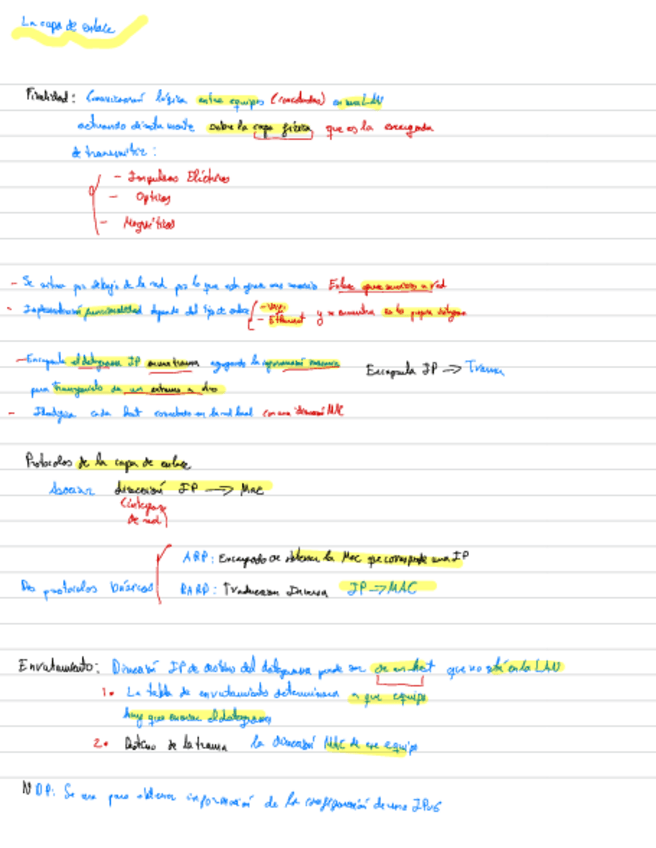 La capa de enlace
Finalidad: Comunicación lógica entre equipos (conectados) en una LAN
actuando directamente sobre la capa física que es la encargada
de transmitir:
- Impulsos Eléctricos
- Opticos
- Magnéticos
- Se sitúa por debajo de la red por lo que esta ofrece sus servicios Enlace ofrece servicios a red
- Implementación funcionalidad depende del tipo de enlace - Wifi
- Ethernet y se encuentra en la propia tarjeta
- Encapsula el datagrama IP en una trama agregando la información necesaria
para transportarlo de un extremo a otro
Encapsula IP → Trama
- Identifica cada host conectado en la red local con una dirección MAC
Protocolos de la capa de enlace
Asociar dirección IP → MAC
(interfaz
de red)
Dos protocolos básicos
ARP: Encargado de obtener la Mac que corresponde una IP
RARP: Traduccion Inversa IP → MAC
Enrutamiento: Dirección IP de destino del datagrama puede ser de un host que no esté en la LAN
1. La tabla de enrutamiento determinara a que equipo
hay que enviar el datagrama
2. Destino de la trama la dirección MAC de ese equipo
NDP: Se usa para obtener información de la configuración de una IPv6